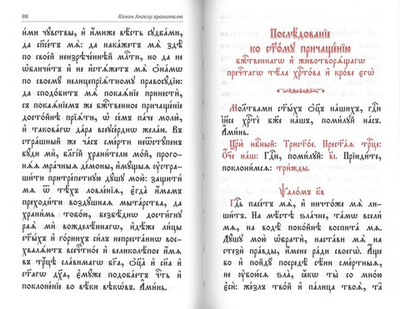 88
Канон Ангелу хранителю
и́ми чꙋ́вствы, и҆ и҆́миже вѣ́сть сꙋдьба́ми,
да спасе́тъ мѧ̀: да спасе́тъ мѧ̀ по
свое́й неизрече́ннѣй ми́лости, а҆ не по
и҆ не и҆стѧ́жетъ мѧ̀
по нелицепрїѧ́тномꙋ правосꙋ́дїю:
да сподо́битъ мѧ̀ покаѧ́нїе принестѝ,
съ покаѧ́нїемъ же бж҃е́ственное причаще́нїе
досто́йнѣ прїѧ́ти, ѡ҆ се́мъ па́че молю̀,
и҆ таковаго̀ да́ра всеꙋсе́рднѡ жела́ю. Въ
стра́шный же ча́съ сме́рти неѿстꙋ́пенъ
бꙋ́ди мѝ, благі́й храни́телю мо́й, прого-
нѧ́ѧ мра́чныѧ де́мѡны, и҆мꙋ́щыѧ ᲂу҆стра-
ши́ти притре́петнꙋю дꙋ́шꙋ мою̀: за-
щитѝ мѧ̀ ѿ тѣ́хъ ловле́нїѧ, є҆гда̀ и҆́мамъ
преходи́ти возд꙯ꙋ́шнаѧ мыта̑рства, да
храни́мь тобо́ю, безбѣ́днѡ дости́гнꙋ
раѧ̀ мѝ вожделѣ́ннагѡ, и҆дѣ́же ли́цы
ст҃ы́хъ и҆ го́рнихъ си́лъ непреста́ннѡ хва́-
лѧтъ всечестно́е и҆ великолѣ́пое и҆́мѧ
въ трⷪ҇цѣ сла́вимагѡ бг҃а, ѻ҆ц҃а̀ и҆ сн҃а и҆
ст҃а́гѡ дх҃а, є҆мꙋ́же подоба́етъ че́сть и҆
поклоне́нїе во вѣ́ки вѣкѡ́въ. А҆ми́нь.
Послѣ́дованїе
ко ст҃о́мꙋ причаще́нїю
бж҃е́ственнагѡ и҆ животворѧ́щагѡ
пречⷭ҇тагѡ тѣ́ла хрⷭ҇то́ва и҆ кро́ве є҆гѡ̀
Моли́твами ст҃ы́хъ ѻ҆тє́цъ на́шихъ, гдⷭ҇и
і҆и҃се хрⷭ҇тѐ бж҃е на́шъ, поми́лꙋй на́съ.
А҆ми́нь.
Цр҃ю̀ нбⷭ҇ный: Трист҃о́е. Прест҃а́ѧ трⷪ҇це:
Ѻ҆́ч҃е на́шъ: Гдⷭ҇и, поми́лꙋй, в҃і. Прїиди́те,
поклони́мсѧ: три́жды.
Ѱало́мъ к҃в
Гдⷭ҇ь пасе́тъ мѧ̀, и҆ ничто́же мѧ̀ ли-
ши́тъ. На мѣ́стѣ зла́чнѣ, та́мѡ всели́
мѧ, на водѣ̀ поко́йнѣ воспита́ мѧ.
Дꙋ́шꙋ мою̀ ѡ҆братѝ, наста́ви мѧ̀ на
стєзѝ пра́вды, и҆́мене ра́ди своегѡ̀. А҆́ще
бо и҆ пойдꙋ̀ посредѣ̀ сѣ́ни сме́ртныѧ,
не ᲂу҆бою́сѧ ѕла̀, ꙗ҆́кѡ ты̀ со мно́ю
є҆сѝ: же́злъ тво́й и҆ па́лица твоѧ̀, та̑